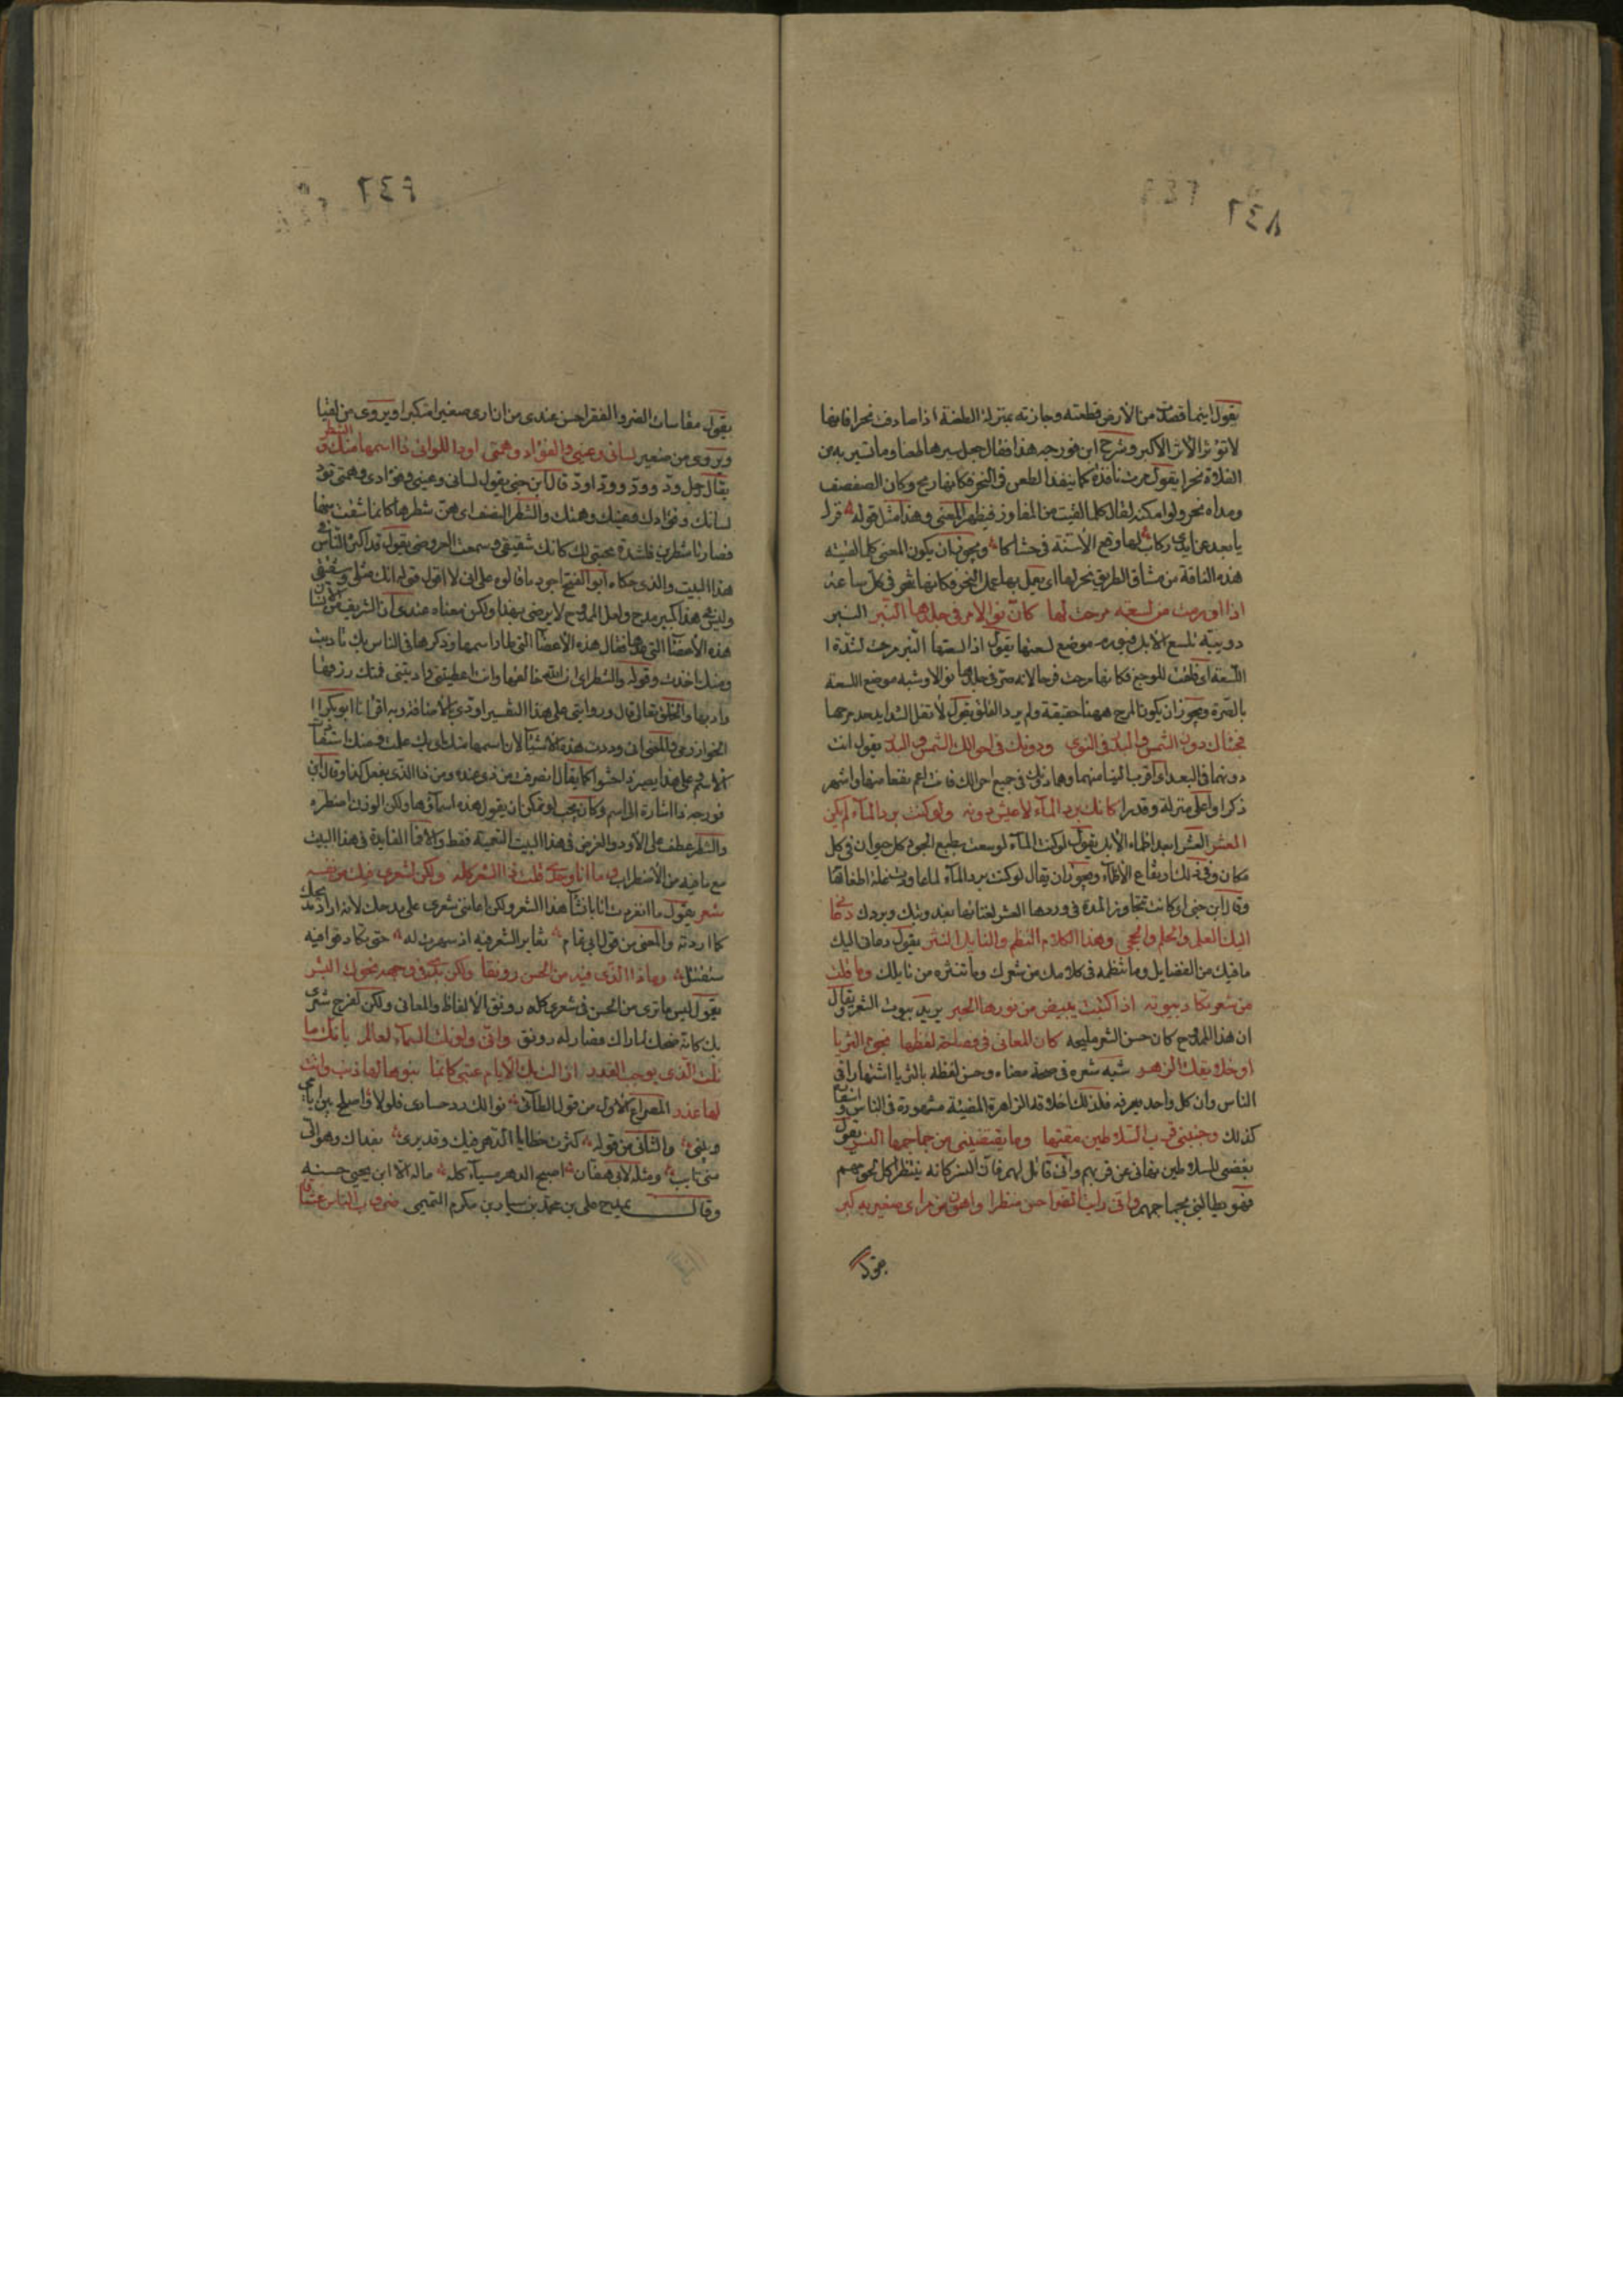 ٢٤٨
٢٤٩
يقول اينما قصدت من الأرض قطعته وجازته بمنزلة الطعنة اذا صادف نحرا فانها
لا تؤثر الأثر الأكبر وشرح ابن فورجه هذا فقال جعل سيرها طعنا وما تسير به من
الفلاة نحرا يقول مرت نافذة كما ينفذ الطعن في النحر فكأنها ريح وكان الصفصف
ومداه نحر ولو امكنه لقال كلما القيت من المفاوز فيظهر المعنى وهذا مثل قوله
يا بعد عنا يدى ركاب لها وقع الأسنة في حشاكا ويجوز ان يكون المعنى كلما لقيته
هذه الناقة من مشاق الطريق نحر لها اى يعمل بها عمل النحر فكأنها تنحر في كل ساعة
اذا ورمت من لسعة مرحت لها كان نوالا صر في جلدها النبر النبر
دويبة تلسع الإبل فيورم موضع لسعتها يقول اذا لسعتها النبر مرحت لشدة ا
اللسعة اى قلقت للوجع فكأنها مرحت فرحا لانه صر في جلدها نوالا وشبه موضع اللسعة
بالصرة ويجوز ان يكون المرح ههنا حقيقة ولم يرد القلق يقول لا تقل الشدايد حد مرحها
فجئناك دون الشمس والبدر في النوى ودونك في احوالك الشمس والبدر يقول انت
دونهما في البعد اى اقرب الينا منهما وهما دونك في جميع احوالك فانت اعم نفعا منها واشهر
ذكرا واعلى منزلة وقدرا كانك برد الماء لا عيش دونه ولو كنت برد الماء لم يكن
العشر العشر ابعد اظماء الأبل يقول لو كنت الماء لوسعت بطبع الجود كل حيوان في كل
مكان وفي ذلك ارتفاع الأظماء ويجوز ان يقال لو كنت برد الماء لما
وقال ابن جنى اى كانت تتجاوز المدة في وردها العشر لغنائها بعذوبتك وبردك دعانى
اليك العلم والحلم والحجى وهذا الكلام النظم والنايل النثر يقول دعانى اليك
ما فيك من الفضايل وما تنظمه في كلامك من شعرك وما تنثره من نايلك وما قلت
من شعر تكاد بيوته اذا كتبت يبيض من نورها الحبر يريد بيوت الشعر يقال
ان هذا الممدوح كان حسن الشعر مليحه كان المعانى في فصاحة لفظها نجوم الثريا
او خلائقك الزهر شبه شعره في صحة معناه وحسن لفظه بالثريا اشتهارا في
الناس وان كل واحد يعرفه فلذلك اخلاقه الزاهرة المضيئة مشهورة في الناس
كذلك وجنبنى قرب السلاطين مقتها وما يقتضينى من جماجمها النسر يقول
بغضى السلاطين نهانى عن قربهم وانى قاتل لهم فان النسر كانه ينتظر اكل لحومهم
فهو يطالبنى بجماجمهم وانى رايت الضر احسن منظرا واهون من مراى صغير به كبر
يقول
٢٤٩
يقول مقاسات الضر والفقر احسن عندى من ان ارى صغيرا متكبرا ويروى من لقيا
ويروى من صغير لسانى وعينى والفؤاد وهمتى اود اللواتى ذا اسمها منك والشطر
يقال رجل ود وود وود اود قال ابن جنى يقول لسانى وعينى وفؤادى وهمتى تود
لسانك وفؤادك وعينك وهمتك والشطر النصف اى هن شطرها كانما شقت منها
فصارتا شطرين فلشدة محبتى لك كانك شقيقى وسمعت العروضى يقول قد اكثر الناس في
هذا البيت والذى حكاه ابو الفتح اجود ما قالوه على انى لا اقول قوله انك مثلى وشقيقى
وليس في هذا كبير مدح ولعل الممدوح لا يرضى بهذا ولكن معناه عندى ان الشريف من الانسان
هذه الأعضا التى فقال هذه الأعضا التى طار اسمها وذكرها في الناس بك تأدبت
ومنك اخذت وقوله والشطر اى ان الله خالقها وانت اعطيتنى وادبتنى فمنك رزقها
وادبها والخلق لله تعالى قال وروايتى على هذا التفسير اودى بالأضافة وبه اقرانا ابو بكر
الخوارزمى والمعنى انى وددت هذه الأشيا لان اسمها منك اى بك علت ومنك استفاد
الاسم على هذا يصير ذا حشوا كما يقال انصرفت من ذى عنده ومن ذا الذى يفعل كذا وقال ابن
فورجه ذا اشارة الى اسم وكان يجب لو تمكن ان يقول هذه اسماؤها ولكن الوزن اضطره
والشطر عطف على الأود والغرض في هذا البيت التعمية فقط والا فما الفايدة في هذا البيت
مع ما فيه من الأضطراب وما انا وحدى قلت ذا الشعر كله ولكن لشعرى فيك من نفسه
شعر يقول ما انفردت انا بانشاء هذا الشعر ولكن اعاننى شعرى على مدحك لانه اراد مدحك
كما اردته والمعنى من قول ابى تمام تغاير الشعر فيه اذ سهرت له حتى تكاد قوافيه
ستقتتل وماذا الذى فيه من الحسن رونقا ولكن بدا في وجهه نحوك البشر
يقول ليس ما ترى من الحسن في شعرى كله رونق الألفاظ والمعانى ولكن لفرح شعرى
بك كانه ضحك لما راك فصار له رونق وانى ولو نلت السماء لعالم بانك ما
نلت الذى يوجب القدر ازالت بك الأيام عتبى كانما بنوها لها ذنب وانت
لها عذر المصراع الأول من قول الطائى نوالك رد حسادى فلولا واصلح بين ايامى
وبينى والثانى من قوله كثرت خطايا الدهر فيك وقد يرى بنداك وهو الى
منى تايب ومثله لابى هفان اصبح الدهر مسيئا كله ماله الا ابن يحيى حسنه
وقال يمدح على بن محمد بن سيار بن مكرم التميمى ضروب الناس عشاق